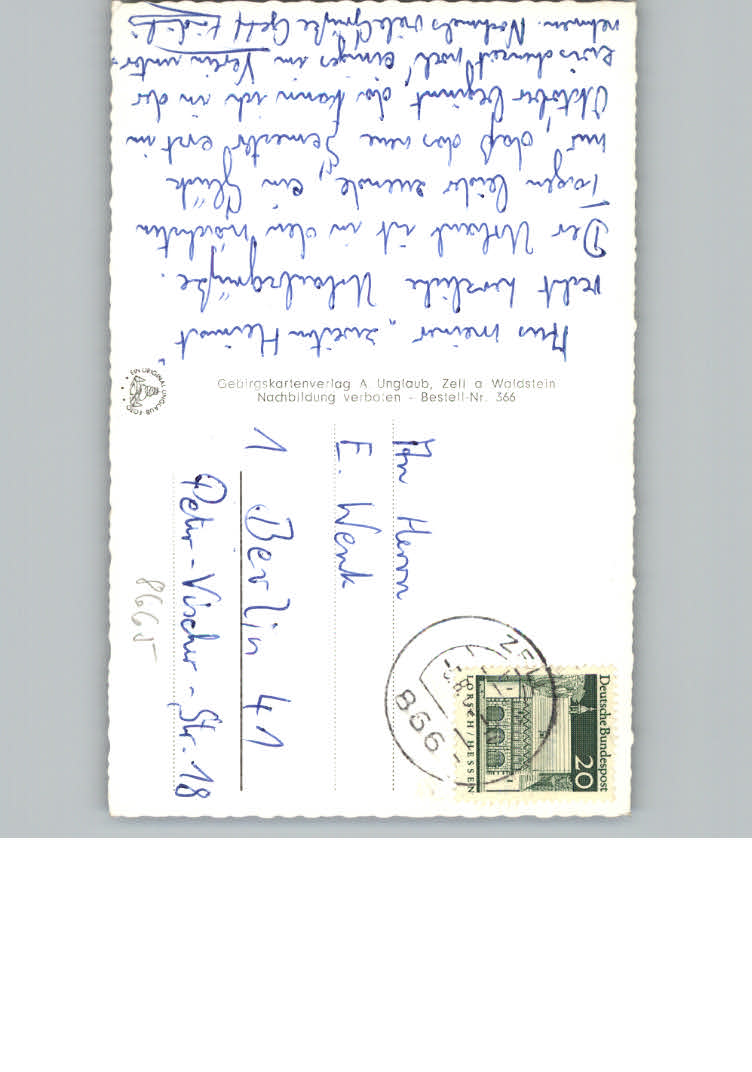 Aus meiner „zweiten Heimat“
recht herzliche Urlaubsgrüße.
Der Urlaub ist in den nächsten
Tagen leider zuende, ein Glück
nur, daß das neue Semester erst im
Oktober beginnt, da kann ich in der
Zwischenzeit noch einiges im Verein unter-
nehmen. Nochmals viele Grüße
Gebirgskartenverlag A. Unglaub, Zell a. Waldstein
Nachbildung verboten – Bestell-Nr. 366
EIN ORIGINAL UNGLAUB FOTO
An Herrn
E. Wenk
1 Berlin 41
Peter-Vischer-Str. 18
8665
Deutsche Bundespost
20
LORSCH/HESSEN
ZELL
866